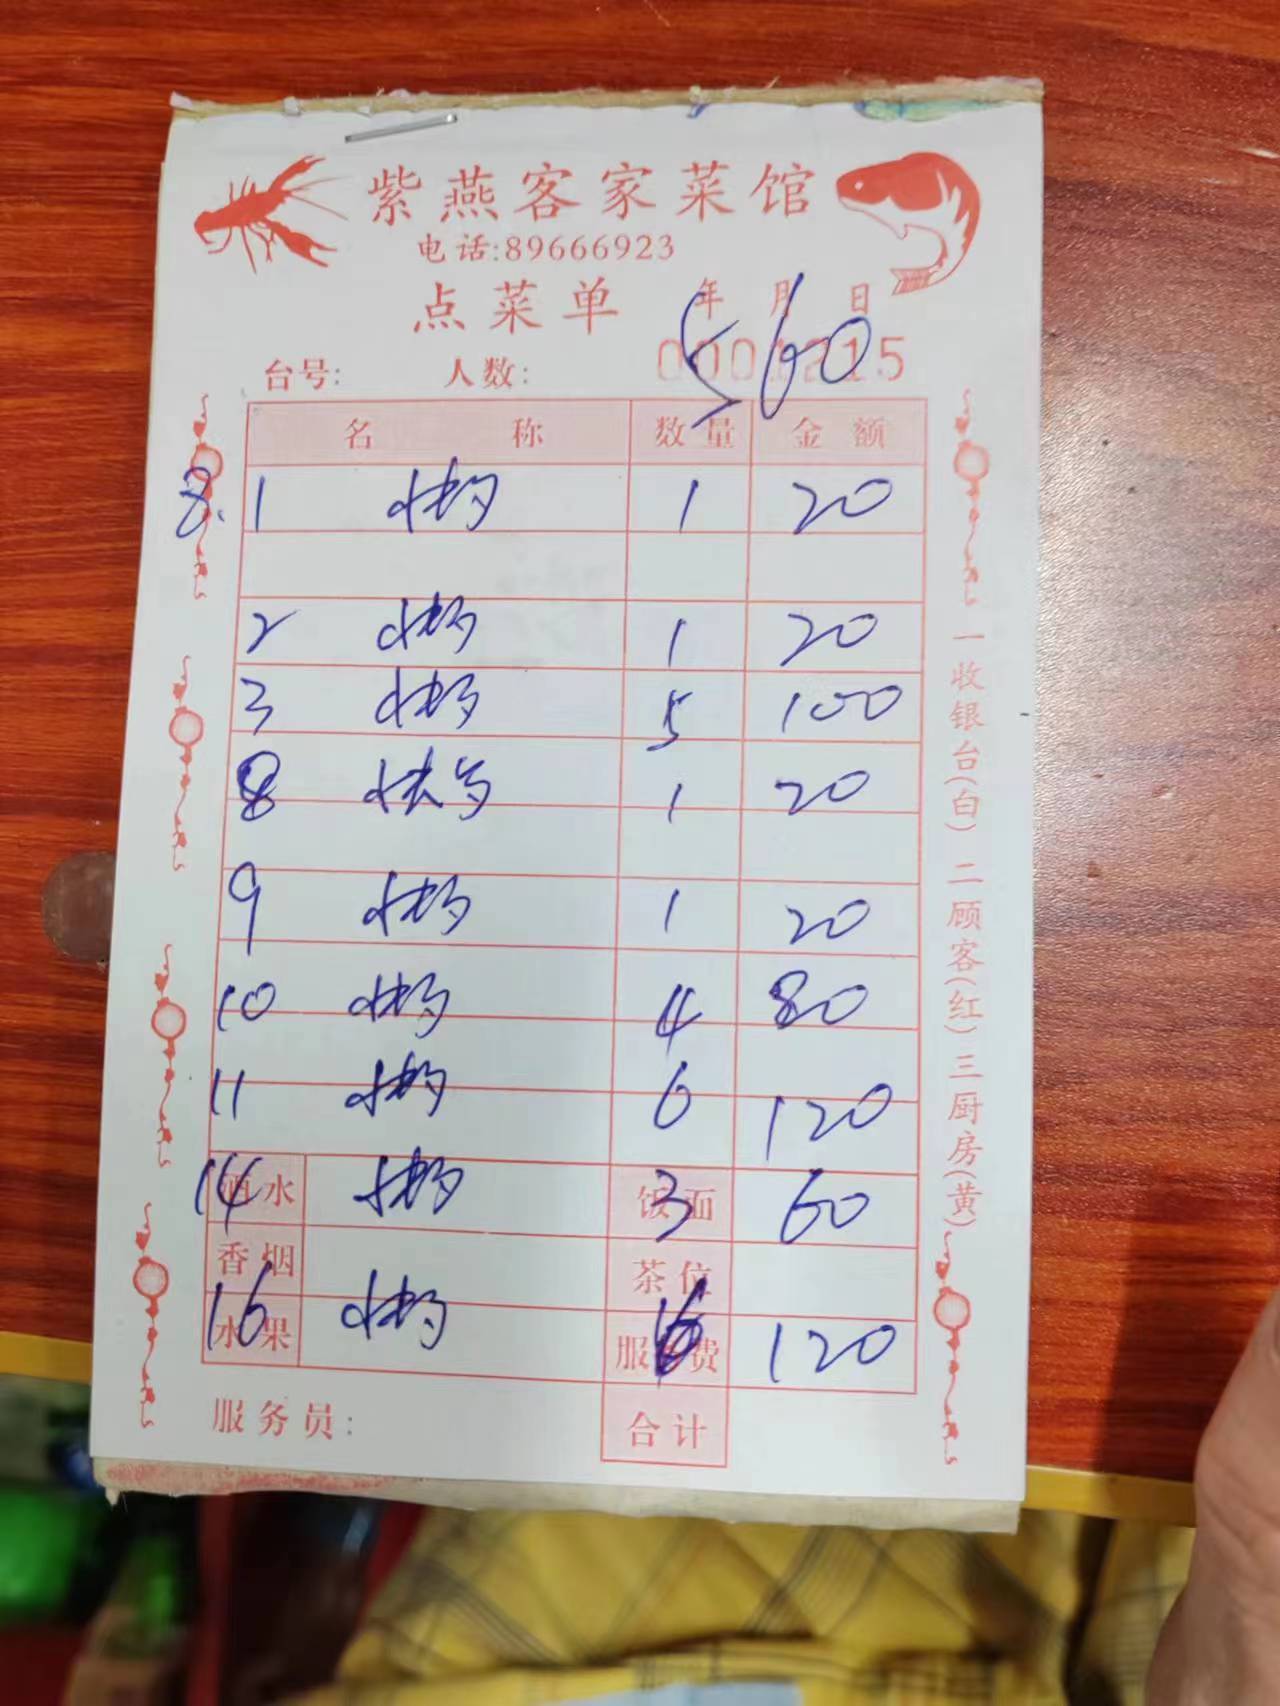 紫燕客家菜馆
电话:89666923
点菜单 年 月 日
560
台号: 人数: 0001215
名 称 数量 金额
8. 1 快餐 1 20
2 快餐 1 20
3 快餐 5 100
8 快餐 1 20
9 快餐 1 20
10 快餐 4 80
11 快餐 6 120
14 快餐 3 60
酒水 饭面
香烟 茶位
16 快餐 6 120
水果 服务费
服务员: 合计
一收银台(白) 二顾客(红) 三厨房(黄)